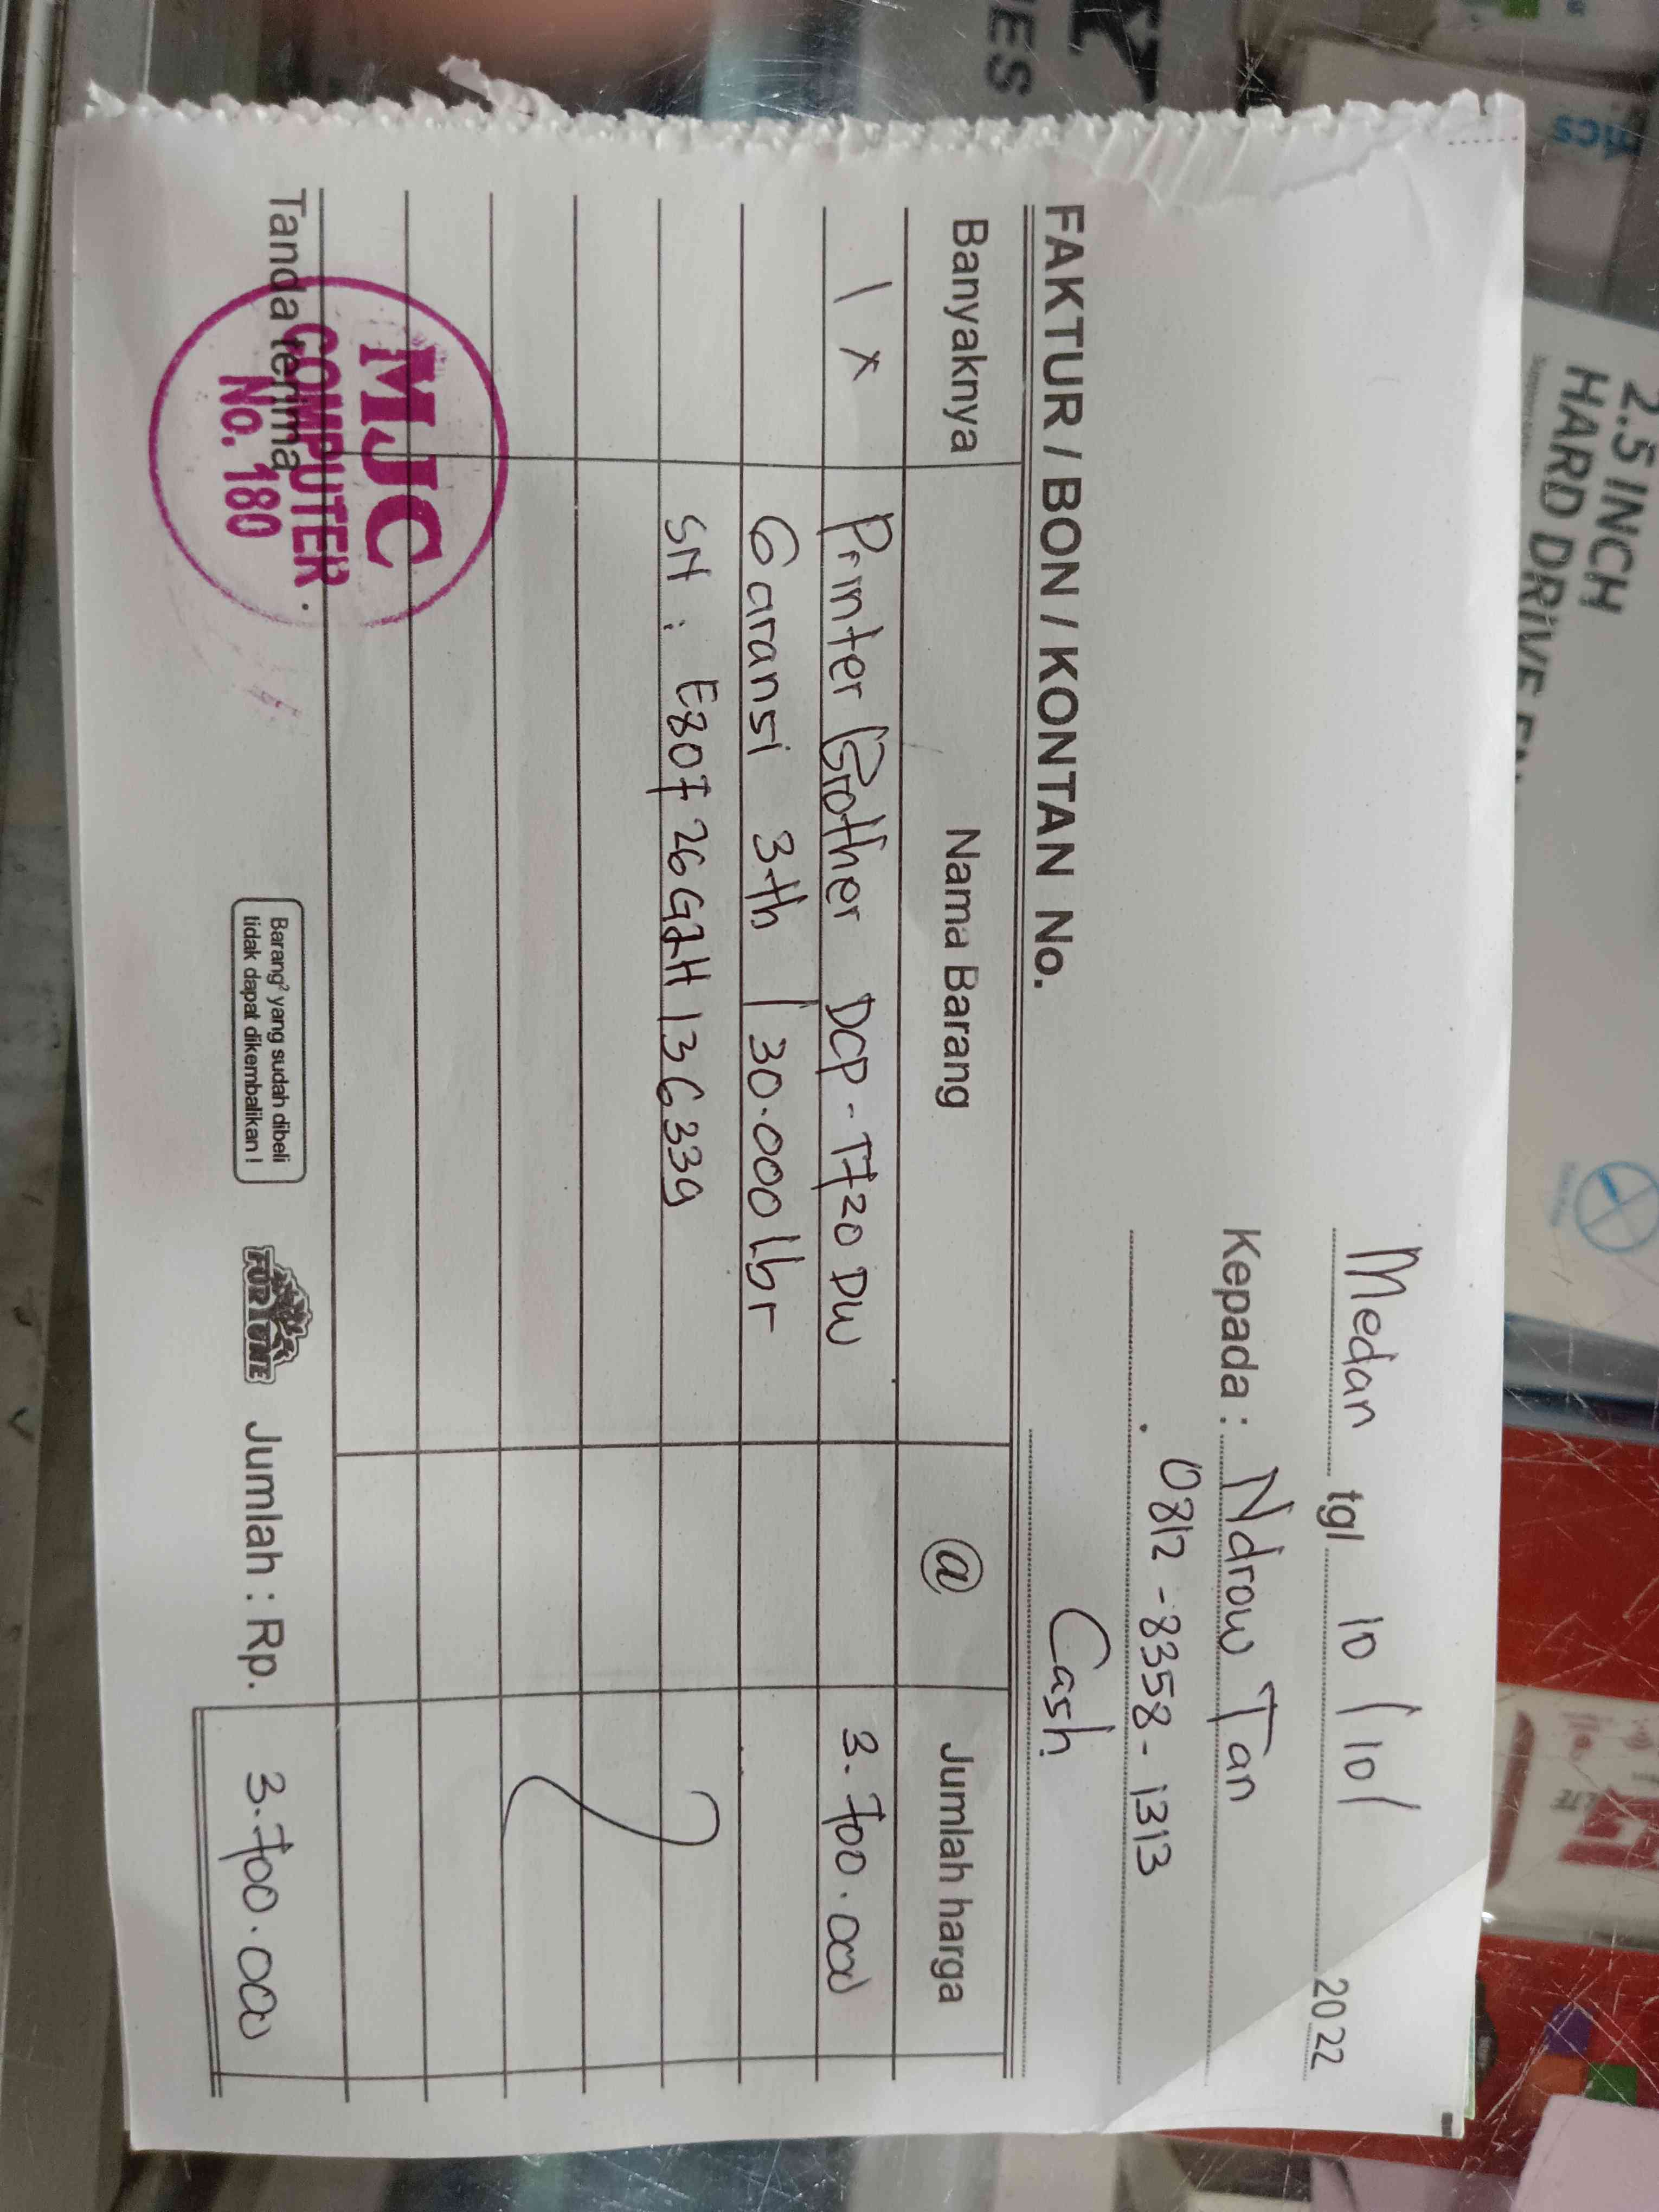 Medan tgl 10/10/ 2022
Kepada : Ndrow Tan
0812-8358-1313
Cash
FAKTUR / BON / KONTAN No.
Banyaknya Nama Barang @ Jumlah harga
1 x Printer Brother DCP-T720 DW 3.700.000
Garansi 3th / 30.000 lbr
SN : E80726G2H136339
Tanda terima
MJC
COMPUTER
No. 180
Barang² yang sudah dibeli
tidak dapat dikembalikan !
FORTUNE
Jumlah : Rp. 3.700.000
2.5 INCH
HARD DRIVE